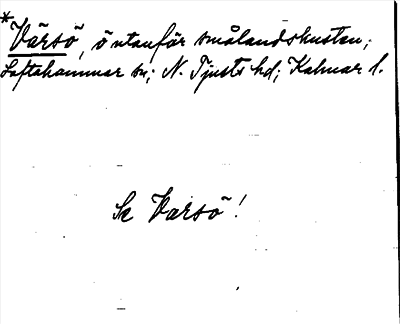 * Värsö, ö utanför smålandskusten;
Loftahammar sn; N. Tjusts hd; Kalmar l.
Se Varsö!